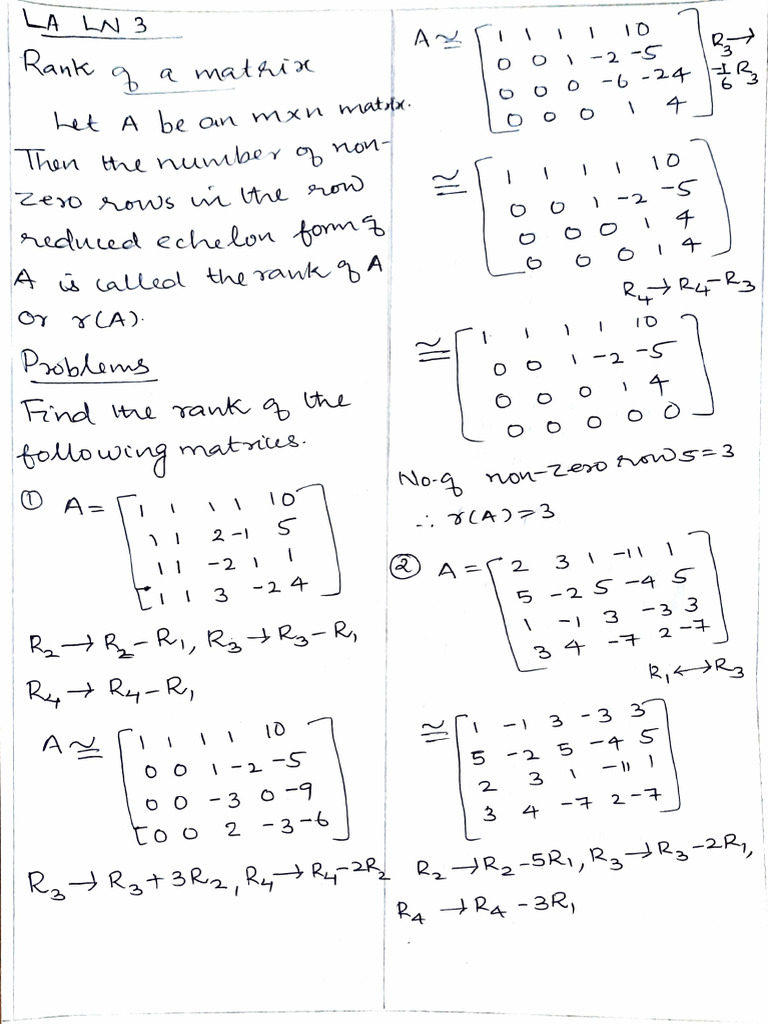 LA LN 3
Rank of a matrix
Let A be an mxn matrix.
Then the number of non-
zero rows in the row
reduced echelon form of
A is called the rank of A
or r(A).
Problems
Find the rank of the
following matrices.
① A = [1 1 1 1 10
1 1 2 -1 5
1 1 -2 1 1
1 1 3 -2 4]
R₂ → R₂ - R₁, R₃ → R₃ - R₁
R₄ → R₄ - R₁
A ≅ [1 1 1 1 10
0 0 1 -2 -5
0 0 -3 0 -9
0 0 2 -3 -6]
R₃ → R₃ + 3R₂, R₄ → R₄ - 2R₂
A ≅ [1 1 1 1 10
0 0 1 -2 -5
0 0 0 -6 -24
0 0 0 1 4] R₃ → -1/6 R₃
≅ [1 1 1 1 10
0 0 1 -2 -5
0 0 0 1 4
0 0 0 1 4]
R₄ → R₄ - R₃
≅ [1 1 1 1 10
0 0 1 -2 -5
0 0 0 1 4
0 0 0 0 0]
No. of non-zero rows = 3
∴ r(A) = 3
② A = [2 3 1 -11 1
5 -2 5 -4 5
1 -1 3 -3 3
3 4 -7 2 -7]
R₁ ↔ R₃
≅ [1 -1 3 -3 3
5 -2 5 -4 5
2 3 1 -11 1
3 4 -7 2 -7]
R₂ → R₂ - 5R₁, R₃ → R₃ - 2R₁,
R₄ → R₄ - 3R₁